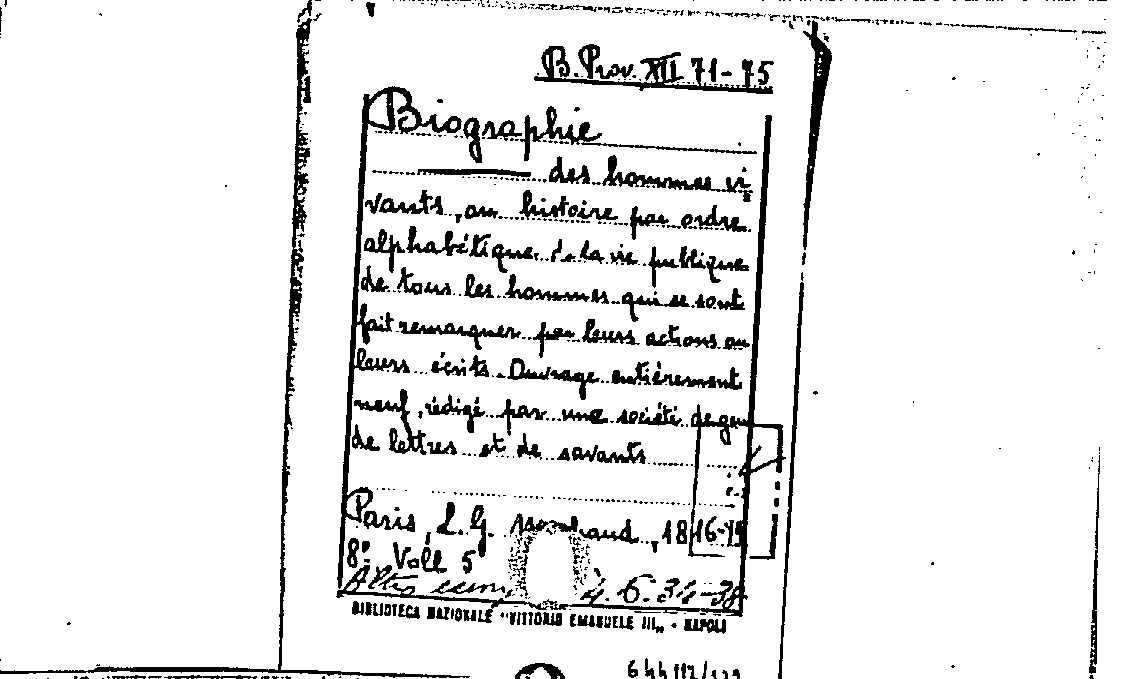 B. Prov. XII 71-75
Biographie
des hommes vi
vants, ou histoire par ordre
alphabétique de la vie publique
de tous les hommes qui se sont
fait remarquer par leurs actions ou
leurs écrits. Ouvrage entiérement
neuf, rédigé par une société de gens
de lettres et de savants
Paris, L. G. 1816-19
8º Voll 5
Altro 34-38
BIBLIOTECA NAZIONALE "VITTORIO EMANUELE III„ - NAPOLI